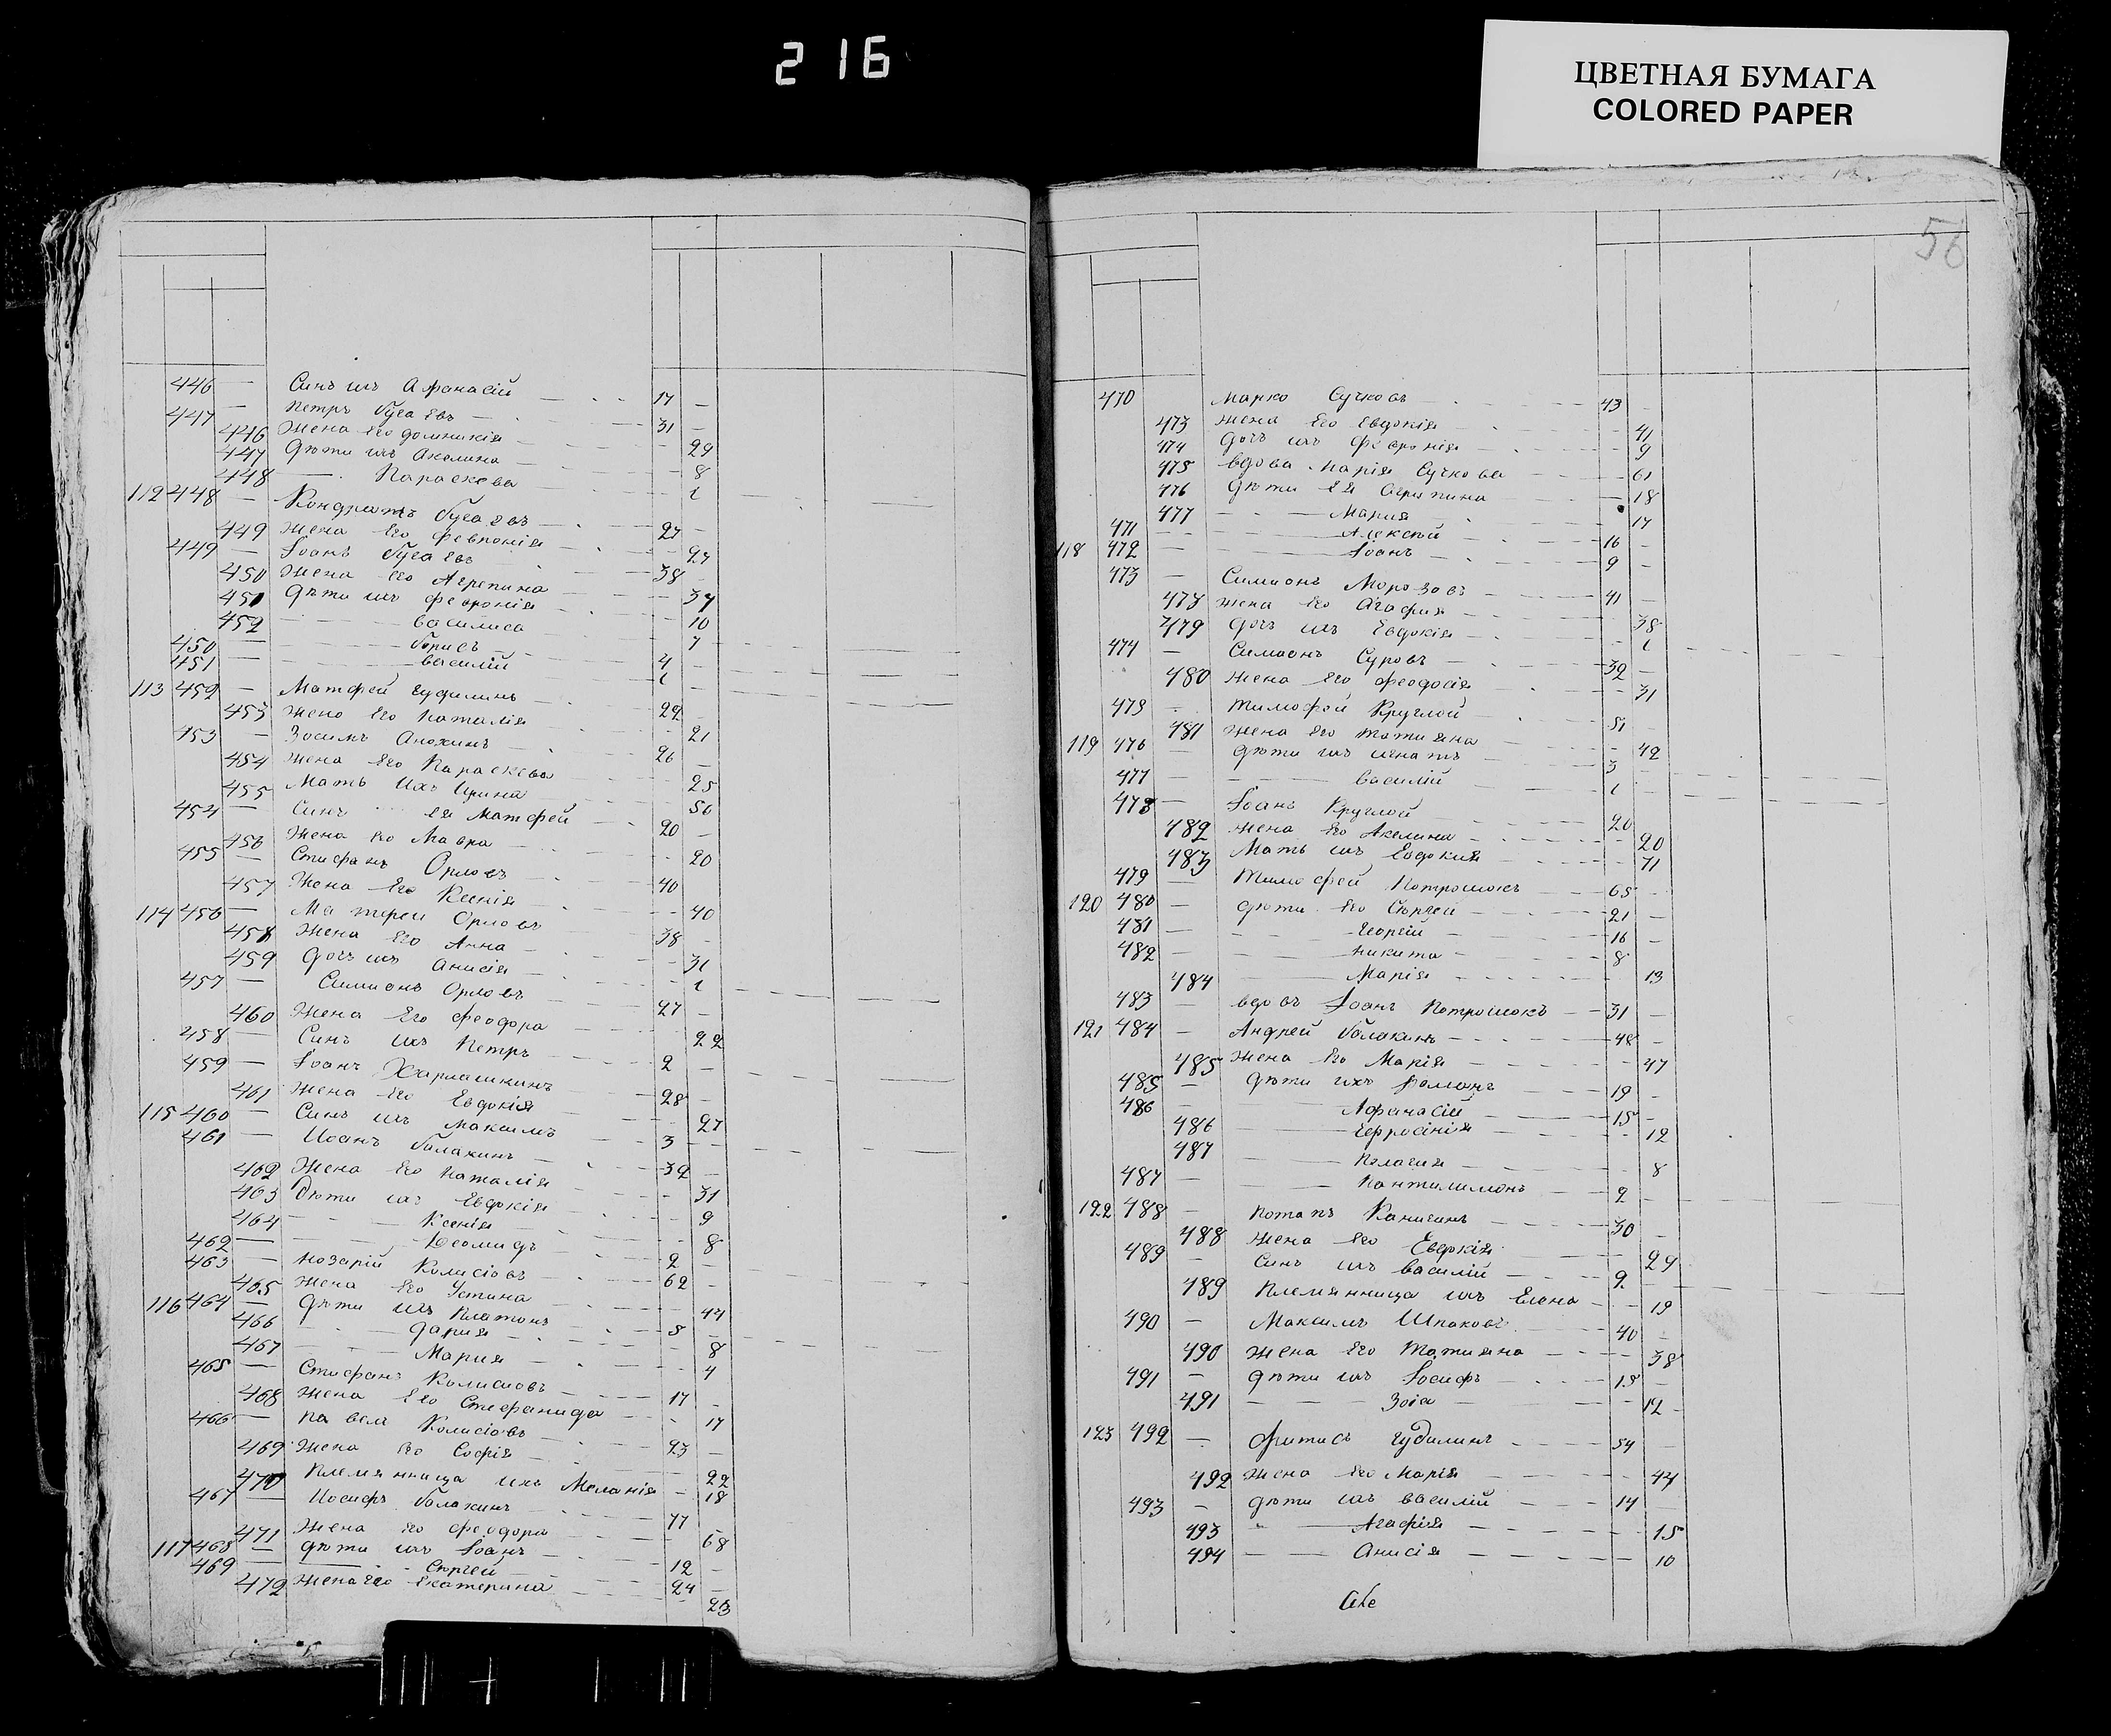 216
ЦВЕТНАЯ БУМАГА
COLORED PAPER
56
446 — Синъ ихъ Афанасій 17 —
447 — Петръ Бугаевъ 31 —
446 Жена его Домникія — 29
447 Дѣти ихъ Акелина — 8
448 — Параскева — 1
112 448 — Кондратъ Бугаевъ 27 —
449 Жена его Февронія — 27
449 — Іоанъ Бугаевъ 38 —
450 Жена его Агрепина — 37
451 Дѣти ихъ Февронія — 10
452 — Василиса — 7
450 — Борисъ 4 —
451 — Василій 1 —
113 452 — Матфей Гудилинъ 22 —
453 Жена его Наталія — 21
453 — Зосимъ Анохинъ 26 —
454 Жена его Параскева — 25
455 Мать ихъ Ирина — 50
454 — Синъ ея Матфей 20 —
456 Жена его Мавра — 20
455 — Стефанъ Орловъ 40 —
457 Жена его Ксенія — 40
114 456 — Матфей Орловъ 38 —
458 Жена его Анна — 31
459 Дочь ихъ Анисія — 1
457 — Симионъ Орловъ 27 —
460 Жена его Феодора — 22
458 — Синъ ихъ Петръ 2 —
459 — Іоанъ Харлашкинъ 28 —
461 Жена его Евдокія — 27
115 460 — Синъ ихъ Максимъ 3 —
461 — Иоанъ Балакинъ 32 —
462 Жена его Наталія — 31
463 Дѣти ихъ Евдокія — 9
464 — Ксенія — 8
462 — Деомидъ 2 —
463 — Назарій Колисіовъ 62 —
465 Жена его Устина — 44
116 464 — Дѣти ихъ Платонъ 5 —
466 — Дария — 8
467 — Мария — 4
465 — Стефанъ Колисиовъ 17 —
468 Жена его Стефанида — 17
466 — Павелъ Колисіовъ 23 —
469 Жена его Софія — 22
470 Племянница ихъ Меланія — 18
467 — Иосифъ Балакинъ 77 —
471 Жена его Феодора — 68
117 468 — Дѣти ихъ Іоанъ 12 —
469 — Сергей 24 —
472 Жена его Екатерина — 23
470 Марко Сучковъ 43 —
473 Жена его Евдокія — 41
474 Дочь ихъ Февронія — 9
475 Вдова Марія Сучкова — 61
476 Дѣти ея Агрепина — 18
477 — Мария — 17
471 — Алексѣй 16 —
118 472 — Іоанъ 9 —
473 — Симионъ Морозовъ 41 —
478 Жена его Агафия — 38
479 Дочь ихъ Евдокія — 1
474 — Симионъ Суровъ 32 —
480 Жена его Феодосія — 31
475 — Тимофей Круглой 51 —
481 Жена его Татияна — 42
119 476 — Дѣти ихъ Игнатъ 3 —
477 — Василій 1 —
478 — Іоанъ Круглой 20 —
482 Жена его Акелина — 20
483 Мать ихъ Евдокия — 71
479 — Тимофей Потрошокъ 65 —
120 480 — Дѣти его Сергей 21 —
481 — Георгій 16 —
482 — Никита 8 —
484 — Марія — 13
483 — Вдовъ Іоанъ Потрошокъ 31 —
121 484 — Андрей Балакинъ 48 —
485 Жена его Марія — 47
485 — Дѣти ихъ Романъ 19 —
486 — Афанасій 15 —
486 — Ефросінія — 12
487 — Пелагия — 8
487 — Пантилимонъ 2 —
122 488 — Потапъ Каничинъ 30 —
488 Жена его Евдокія — 29
489 — Синъ ихъ Василій 2 —
489 Племянница ихъ Елена — 19
490 — Максимъ Шпаковъ 40 —
490 Жена его Татияна — 38
491 — Дѣти ихъ Іосифъ 15 —
491 — Зоіа — 12
123 492 — Фитисъ Гудилинъ 54 —
492 Жена его Марія — 44
493 — Дѣти ихъ Василій 14 —
493 — Агафія — 15
494 — Анисія — 10